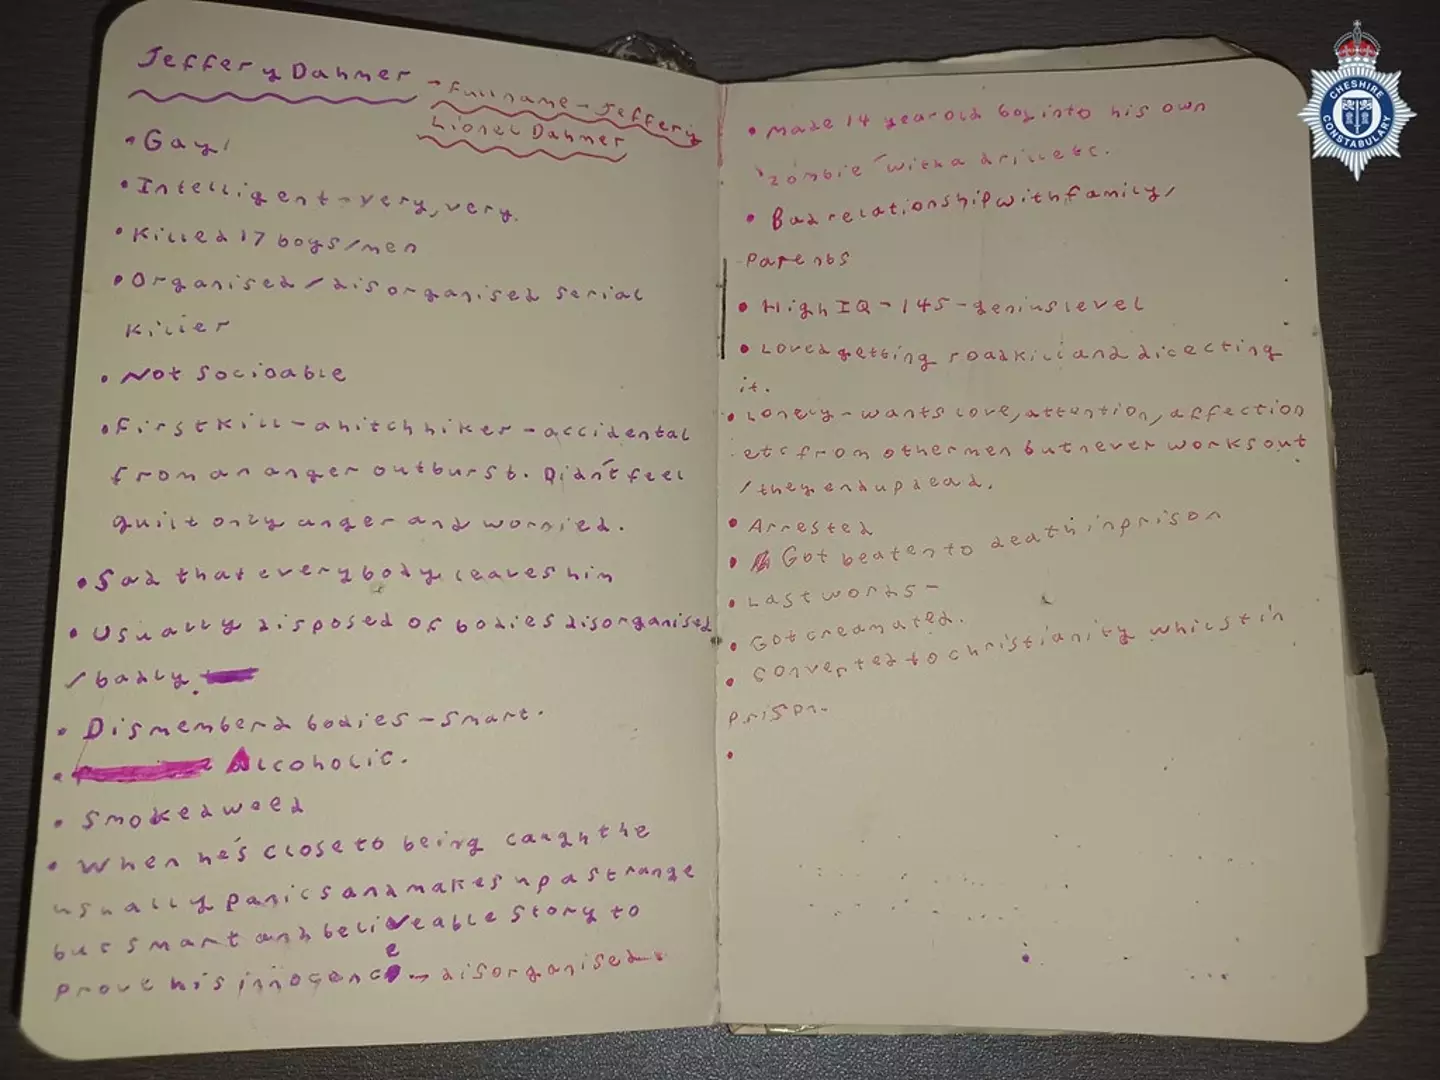 Jeffery Dahmer
→ Full name - Jeffery
Lionel Dahmer
• Gay!
• Intelligent - very, very.
• Killed 17 boys/men
• Organised / disorganised serial
killer
• Not socioable
• First kill - a hitchhiker - accidental
from an anger outburst. Didn't feel
guilt only anger and worried.
• Sad that everybody leaves him
• Usually disposed of bodies disorganised
/badly.
• Dismemberd bodies - smart.
• Alcoholic.
• Smoked weed
• When he's close to being caugh the
usually panics and makes up a strange
but smart and beliveable story to
prove his innocence → disorganised.
• Made 14 year old boy into his own
"zombie" with a drill etc.
• Bad relationship with family/
parents
• High IQ - 145 - genius level
• Loved getting roadkill and dicecting
it.
• Lonely - wants love, attention, affection
etc from other men but never works out
/they end up dead.
• Arrested
• Got beaten to death in prison
• Last words -
• Got creamated.
• Converted to christianity whilst in
prison.
•
CHESHIRE
CONSTABULARY